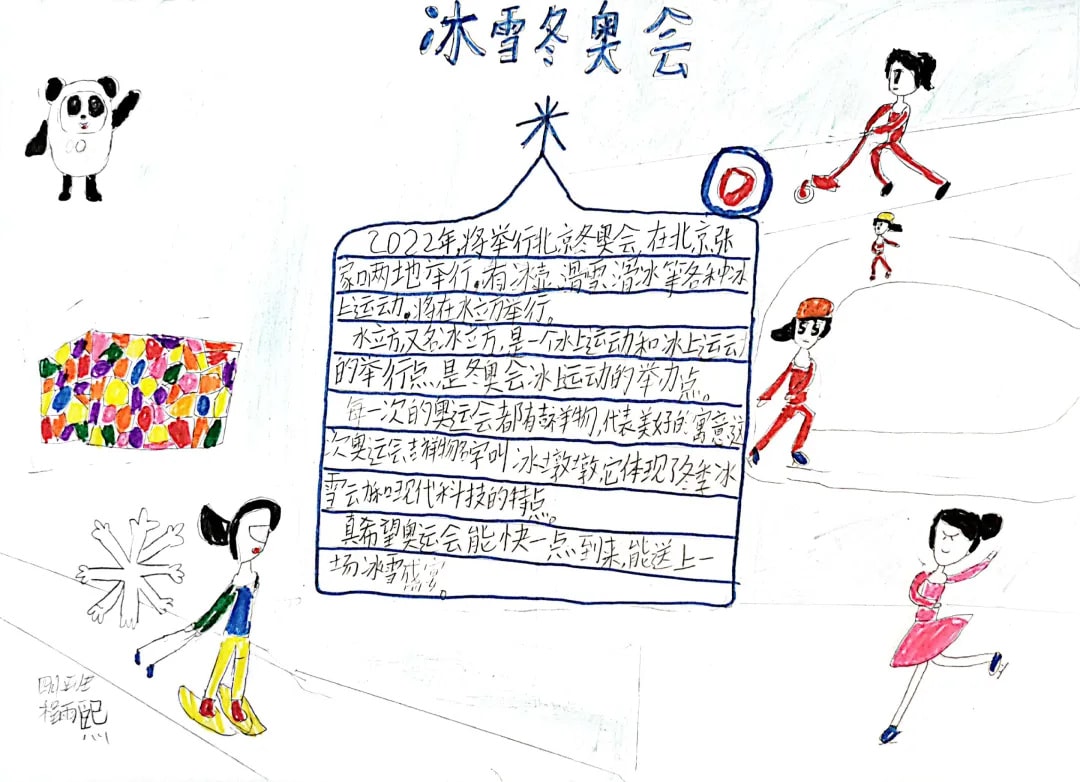 冰雪冬奥会
2022年,将举行北京冬奥会,在北京张
家口两地举行。有冰壶、滑雪、滑冰等各种冰
上运动。将在水立方举行。
水立方,又名冰立方,是一个水上运动和冰上运动
的举行点,是冬奥会冰上运动的举办点。
每一次的奥运会都有吉祥物,代表美好的寓意,这
次奥运会吉祥物名字叫冰墩墩,它体现了冬季冰
雪运动和现代科技的特点。
真希望奥运会能快一点到来,能送上一
场冰雪盛宴。
四班
程雨熙